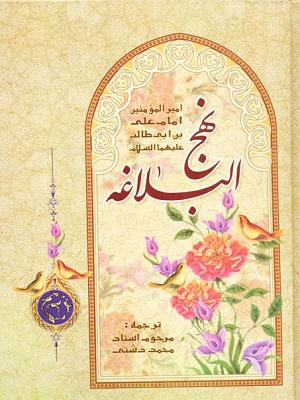 امیرالمؤمنین
امام علی
بن ابی طالب
علیهما السلام
نهج
البلاغه
ترجمه:
مرحوم استاد
محمد دشتی